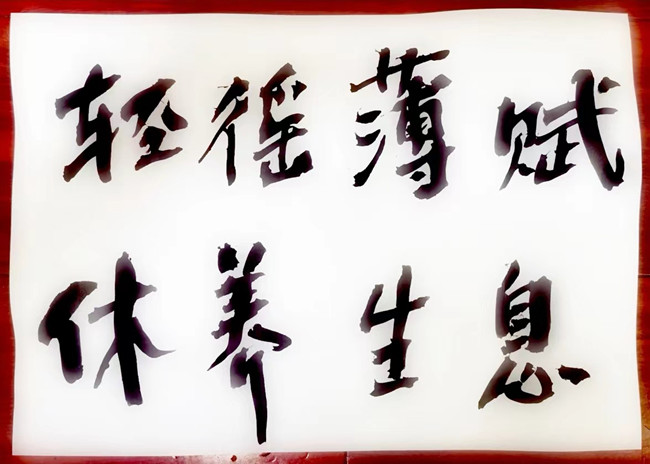 轻徭薄赋
休养生息